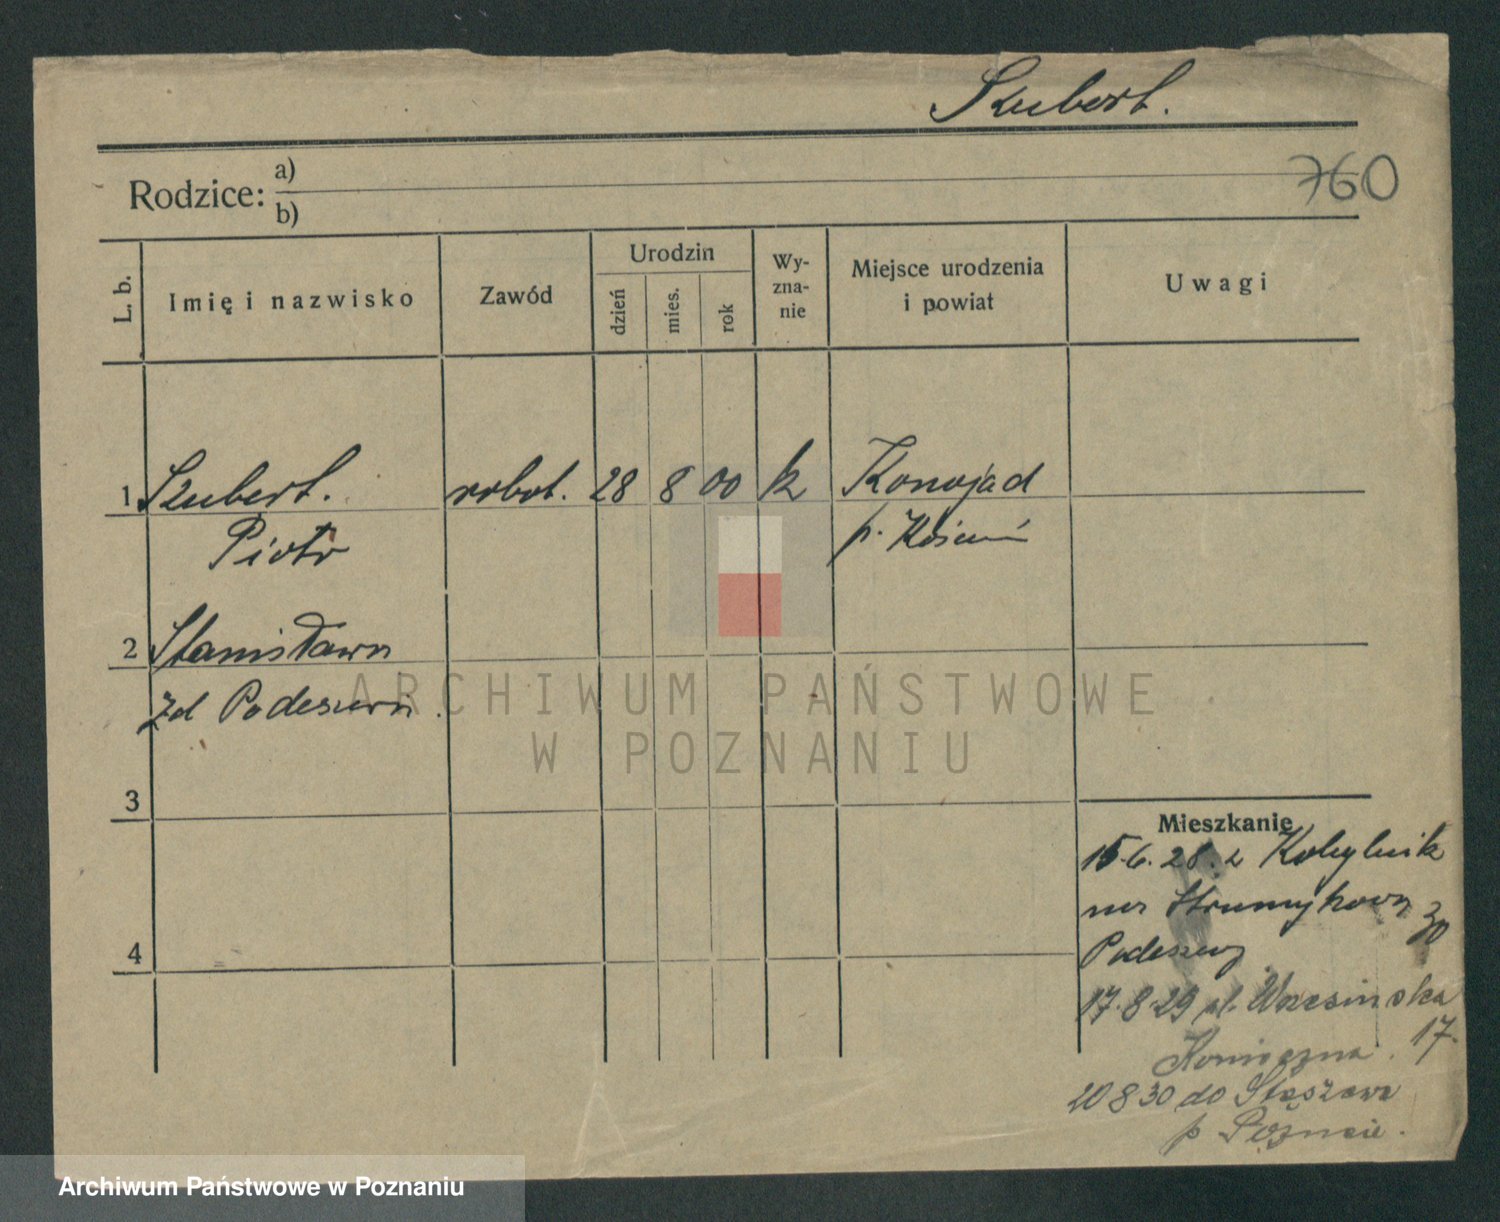 Szubert.
760
Rodzice: a)
b)
L. b.
Imię i nazwisko
Zawód
Urodzin
dzień
mies.
rok
Wy-
zna-
nie
Miejsce urodzenia
i powiat
Uwagi
1 Szubert. robot. 28 8 00 k Konojad
Piotr p. Kościan
2 Stanisława
zd Podeszwa
3
4
Mieszkanie
15.6.28. z Kobylnik
na Strumykową 30
17.8.29 Wrzesińska
17.
Konieczna.
20 8 30 do Stęszewa
p Poznań.
ARCHIWUM PAŃSTWOWE
W POZNANIU
Archiwum Państwowe w Poznaniu